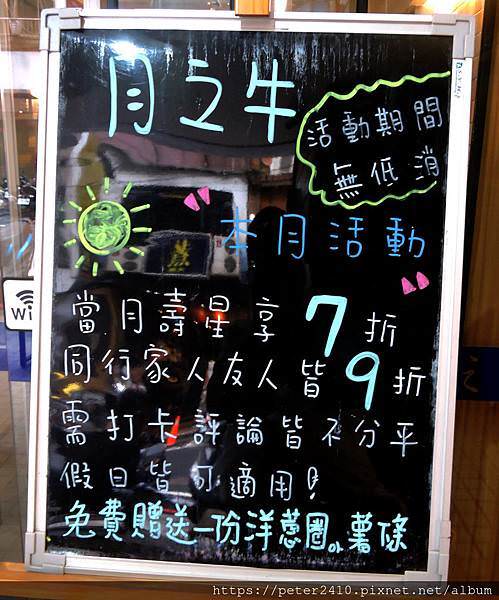 月之牛
活動期間
無低消
本月活動
當月壽星享7折
同行家人友人皆9折
需打卡評論皆不分平
假日皆可適用!
免費贈送一份洋蔥圈。薯條
https://peter2410.pixnet.net/album